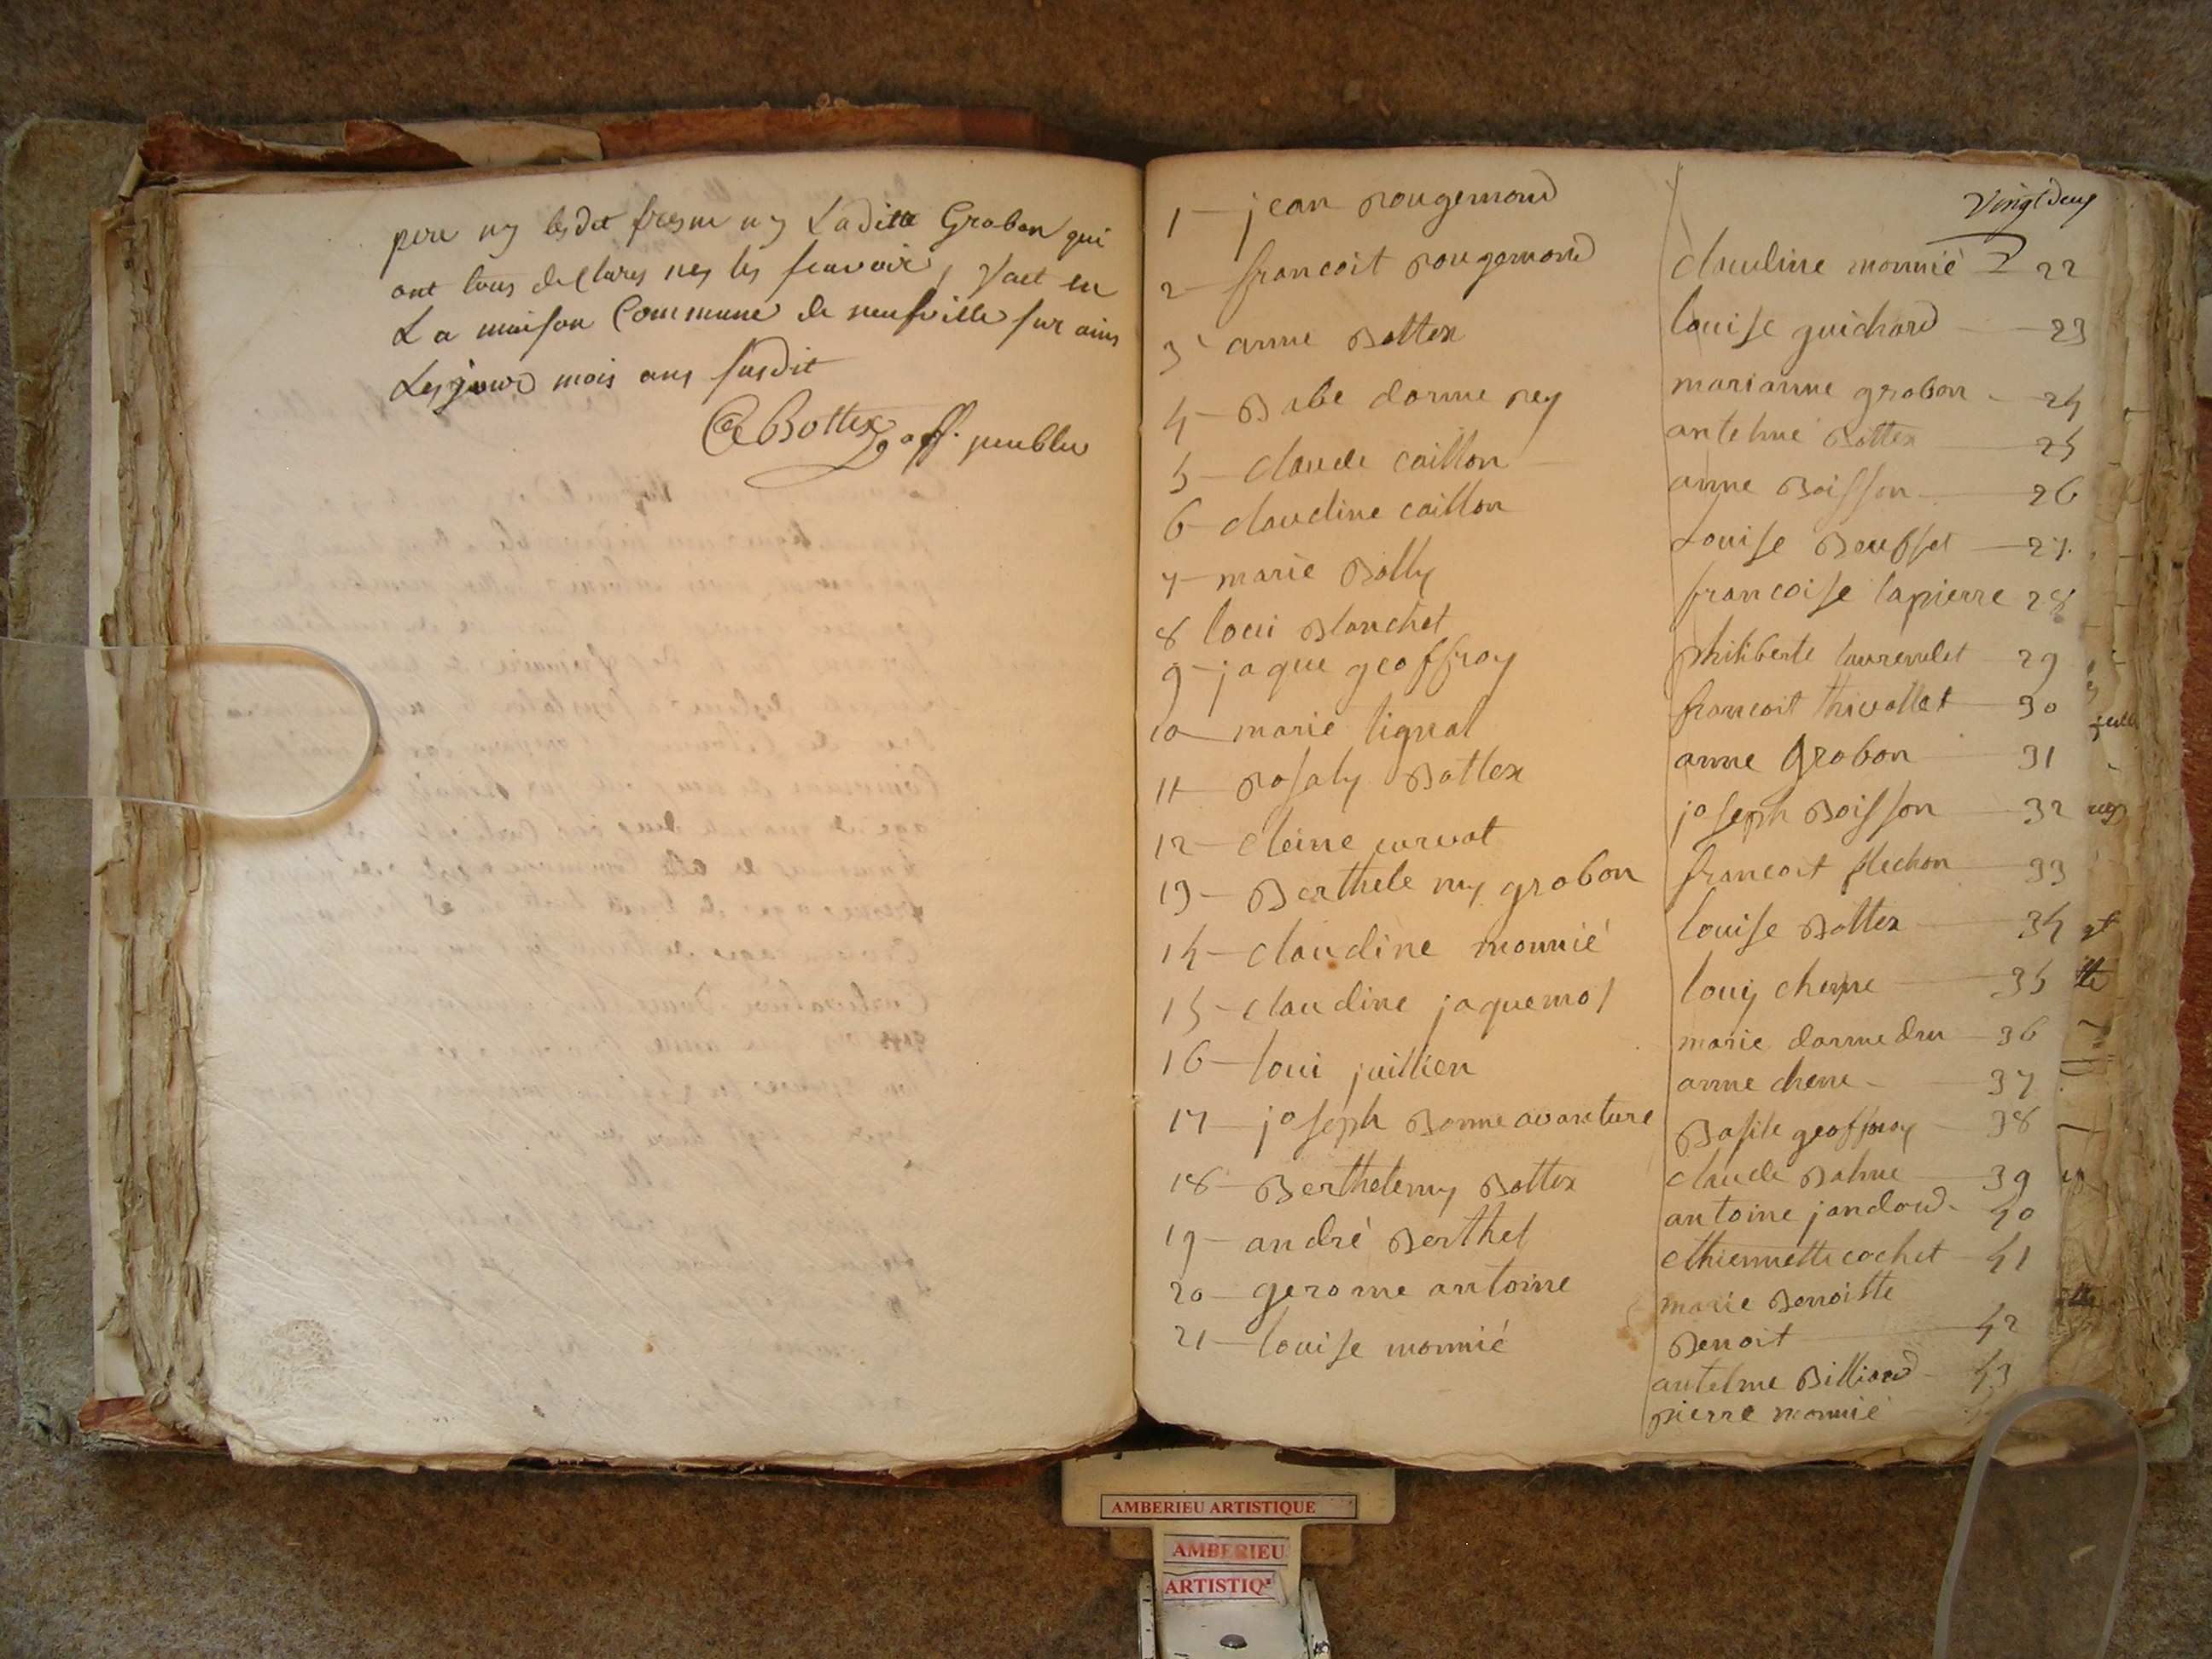 pere ny lesdit fresne ny Laditte Grobon qui
ont tous declares ney les scavoir, fait en
La maison Commune de neufville sur ains
Les jour mois ans susdit
Bottex off. peublic
vingt deux
1 jean rougemond
2 francoit rougemond
3 anne Bottex
4 Babe danne rey
5 claude caillon
6 claudine caillon
7 marie Bolly
8 loui Blanchet
9 jaque geoffroy
10 marie lignal
11 rosaly Bottex
12 cleine curvat
13 Berthele my grobon
14 claudine monnié
15 claudine jaquemot
16 loui juillien
17 joseph Bonne avanture
18 Berthelemy Bottex
19 andré Berthet
20 gerome antoine
21 louise monnié
claudine monnié 22
louise guichard 23
marianne grobon 24
antelme Bottex 25
anne Boisson 26
Louise 27
francoise lapierre 28
philiberte 29
francoit thivollet 30
anne Grobon 31
joseph Boisson 32
francoit flechon 33
louise Bottex 34
louis chesne 35
marie danne dru 36
anne chene 37
Basile geoffroy 38
claude Balme 39
antoine jandard 40
ethiennette cochet 41
marie Benoitte
Benoit 42
antelme Billiard 43
pierre monnié
AMBERIEU ARTISTIQUE
AMBERIEU
ARTISTIQ